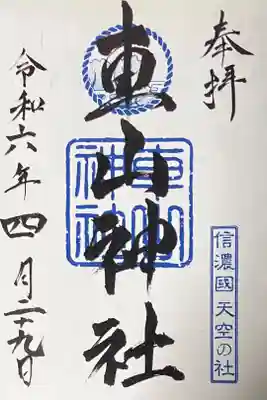 奉拝
信濃國天空の社
東山神社
東山
神社
令和六年四月二十九日